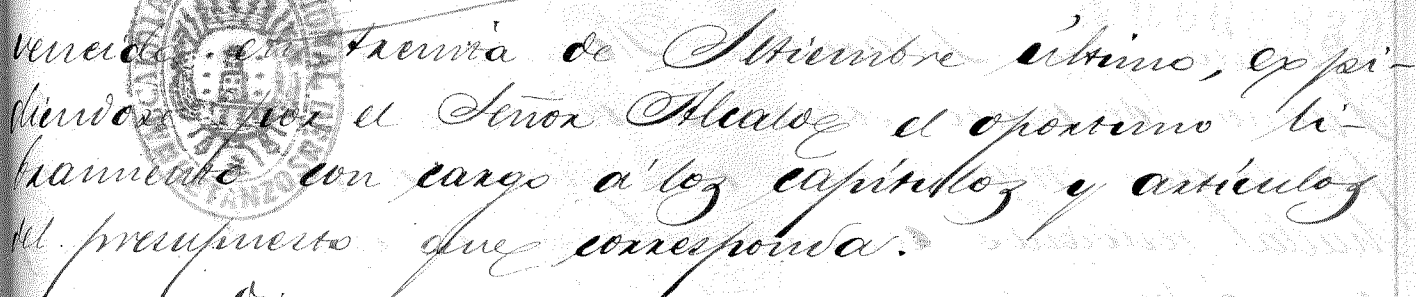 vencido en treinta de Setiembre último, expi-
diendose por el Señor Alcalde el oportuno li-
bramiento con cargo á los capítulos y artículos
del presupuesto que corresponda.